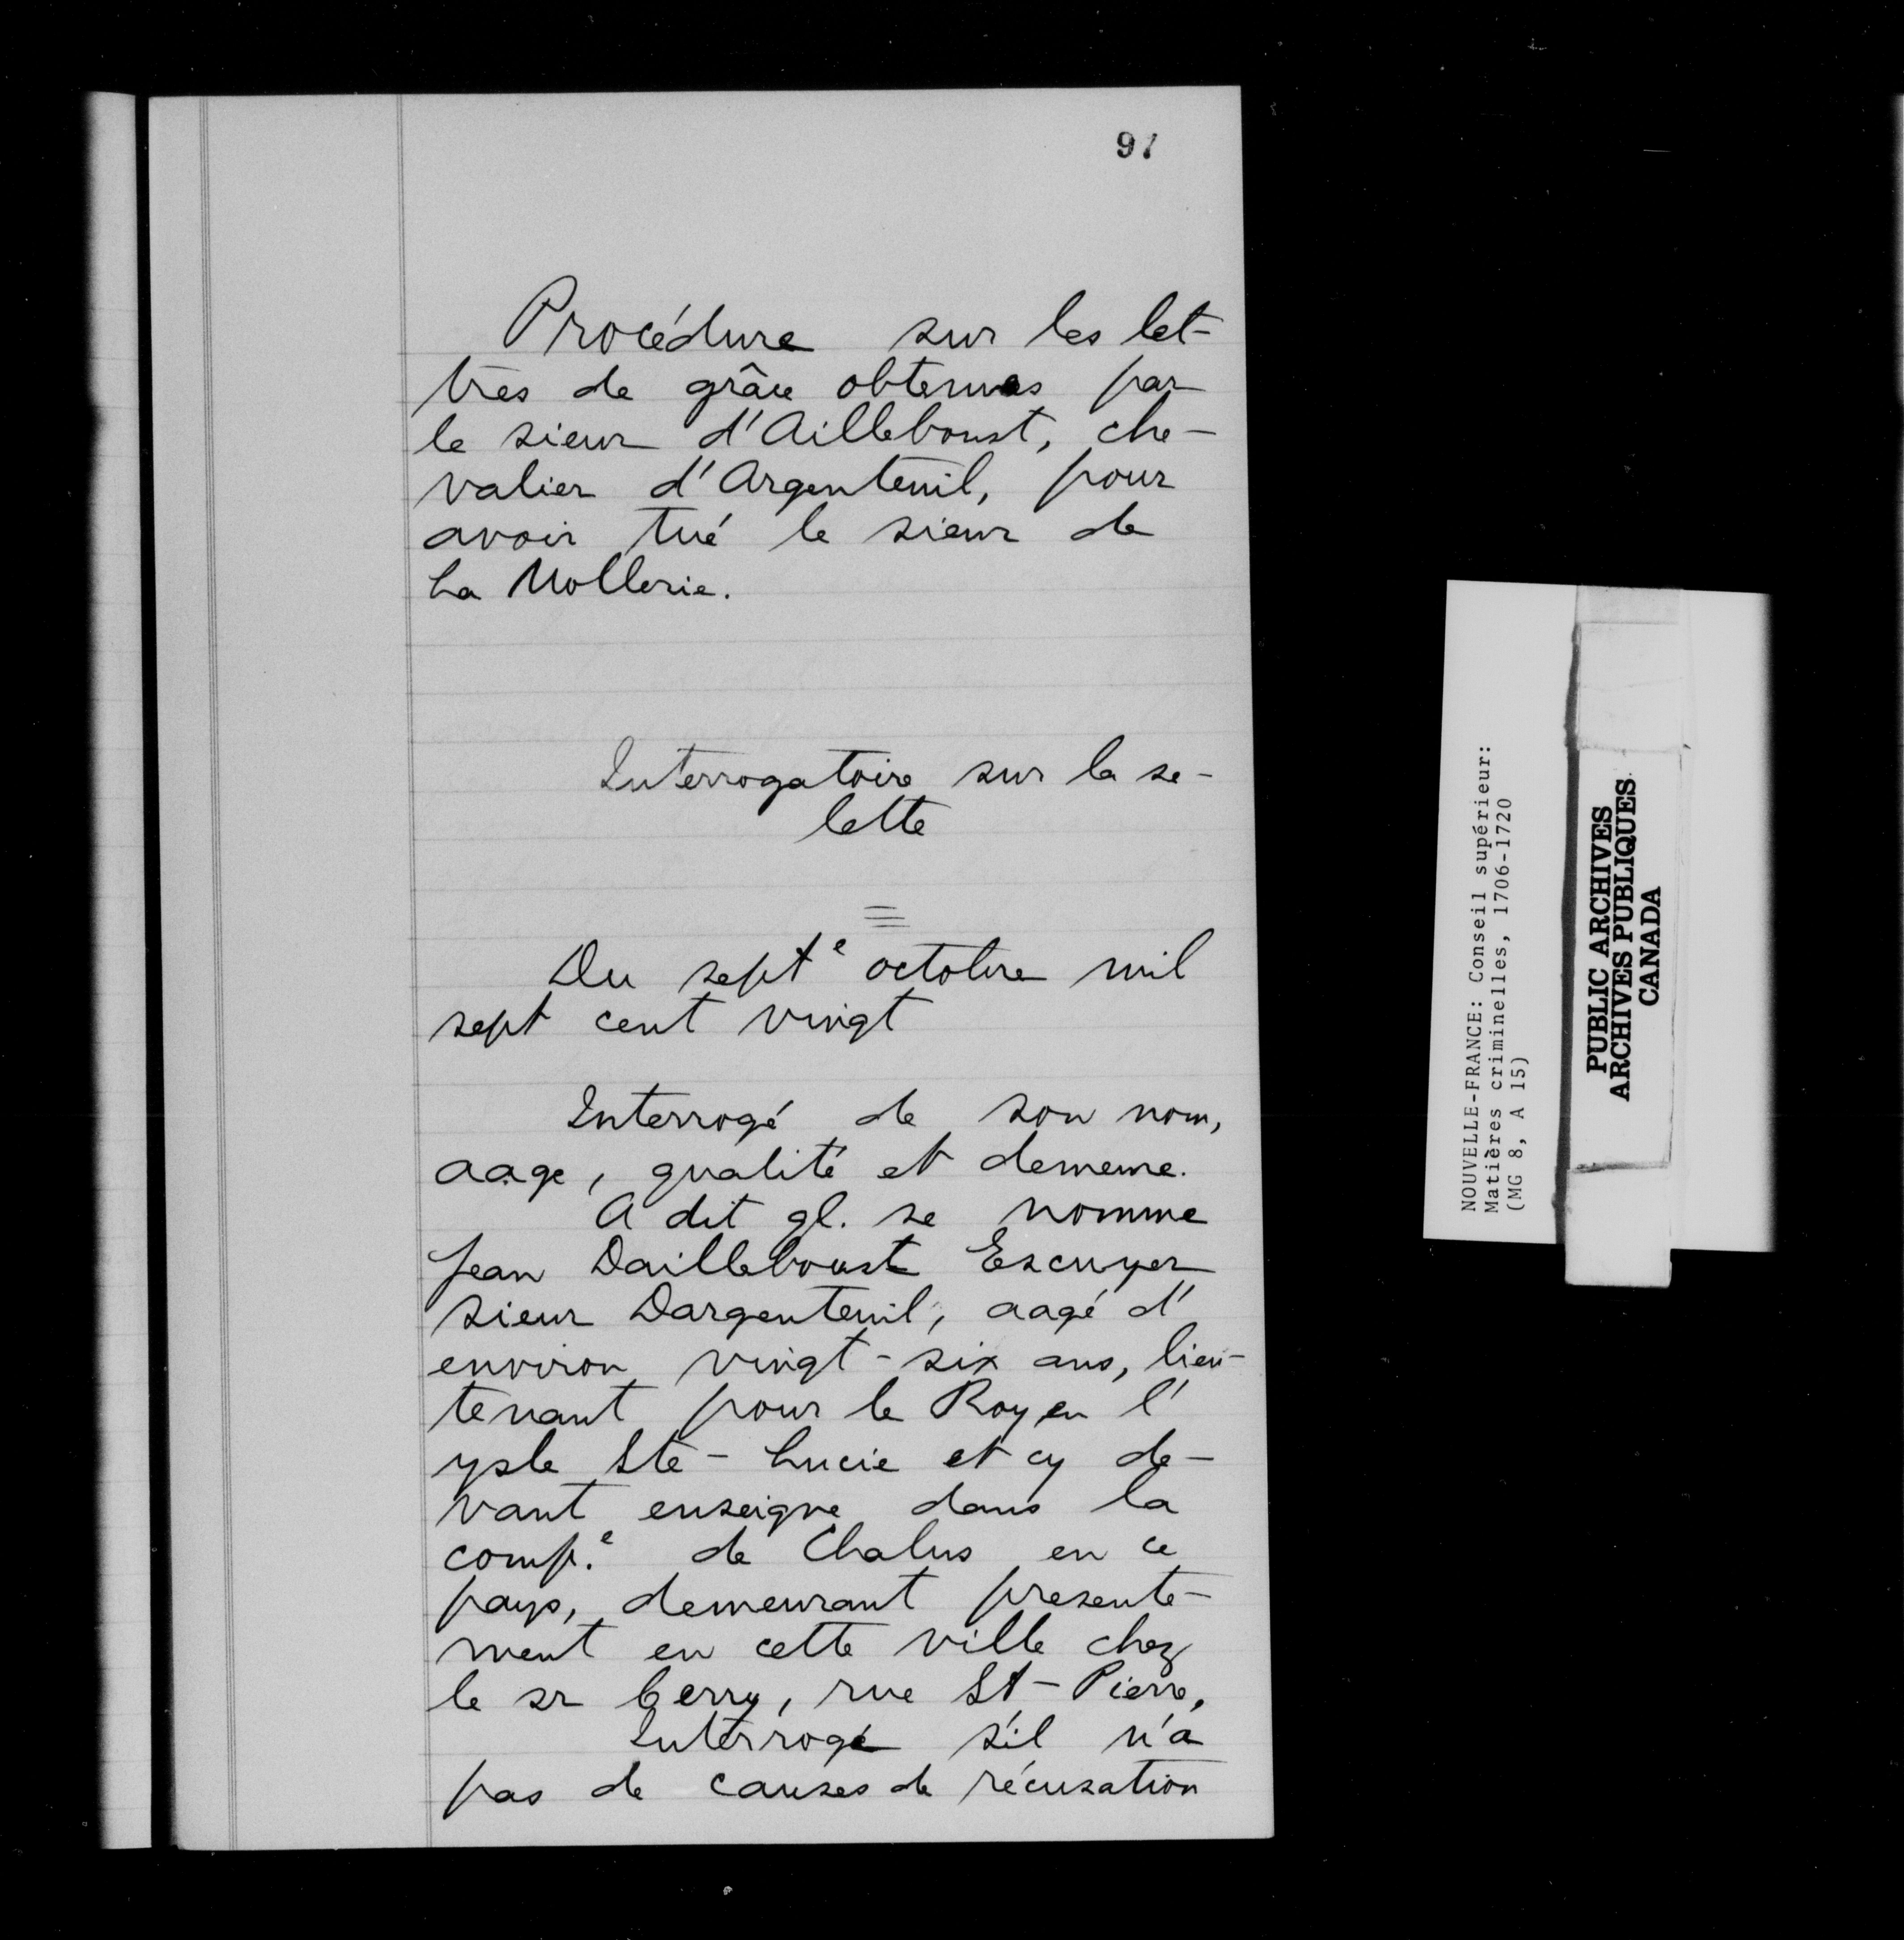 97
Procédure sur les let-
tres de grâce obtenues par
le sieur d'Ailleboust, che-
valier d'Argenteuil, pour
avoir tué le sieur de
La Mollerie.
Interrogatoire sur la se-
lette
Du septe octobre mil
sept cent vingt
Interrogé de son nom,
aage, qualité et demeure.
A dit ql. se nomme
Jean Dailleboust Escuyer
sieur Dargenteuil, aagé d'
environ vingt-six ans, lieu-
tenant pour le Roy en l'
ysle Ste-Lucie et cy de-
vant enseigne dans la
comp.e de Chalus en ce
pays, demeurant presente-
ment en cette ville chez
le sr Cerry, rue St-Pierre,
Interrogé s'il n'a
pas de causes de récusation
NOUVELLE-FRANCE: Conseil supérieur:
Matières criminelles, 1706-1720
(MG 8, A 15)
PUBLIC ARCHIVES
ARCHIVES PUBLIQUES
CANADA